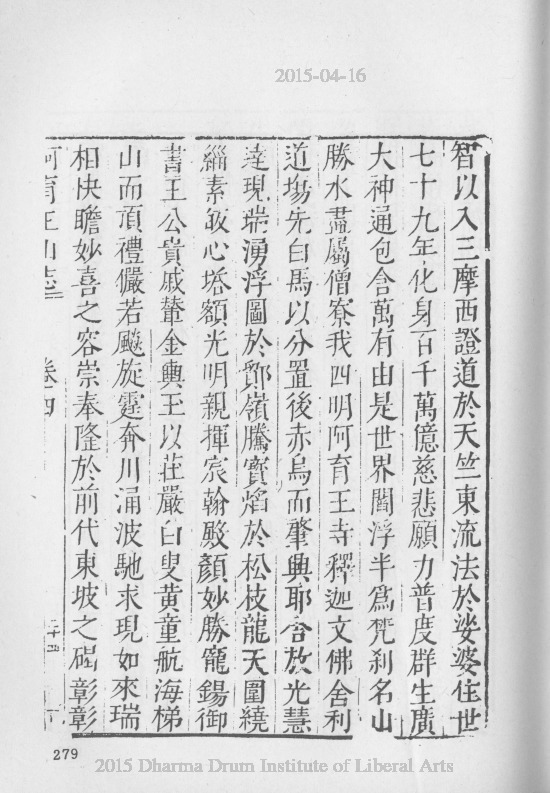 2015-04-16
智以入三摩西證道於天竺東流法於娑婆住世
七十九年化身百千萬億慈悲願力普度群生廣
大神通包含萬有由是世界閻浮半為梵刹名山
勝水盡屬僧寮我四明阿育王寺釋迦文佛舍利
道塲先白馬以分置後赤烏而肇興耶舍放光慧
達現瑞湧浮圖於鄮嶺騰寶焰於松枝龍天圍繞
緇素皈心塔額光明親揮宸翰殿顏妙勝寵錫御
書王公貴戚輦金輿王以莊嚴白叟黃童航海梯
山而頂禮儼若飈旋霆奔川涌波馳求現如來瑞
相快瞻妙喜之容崇奉隆於前代東坡之碣彰彰
阿育王山志 卷四 二十四
279
2015 Dharma Drum Institute of Liberal Arts